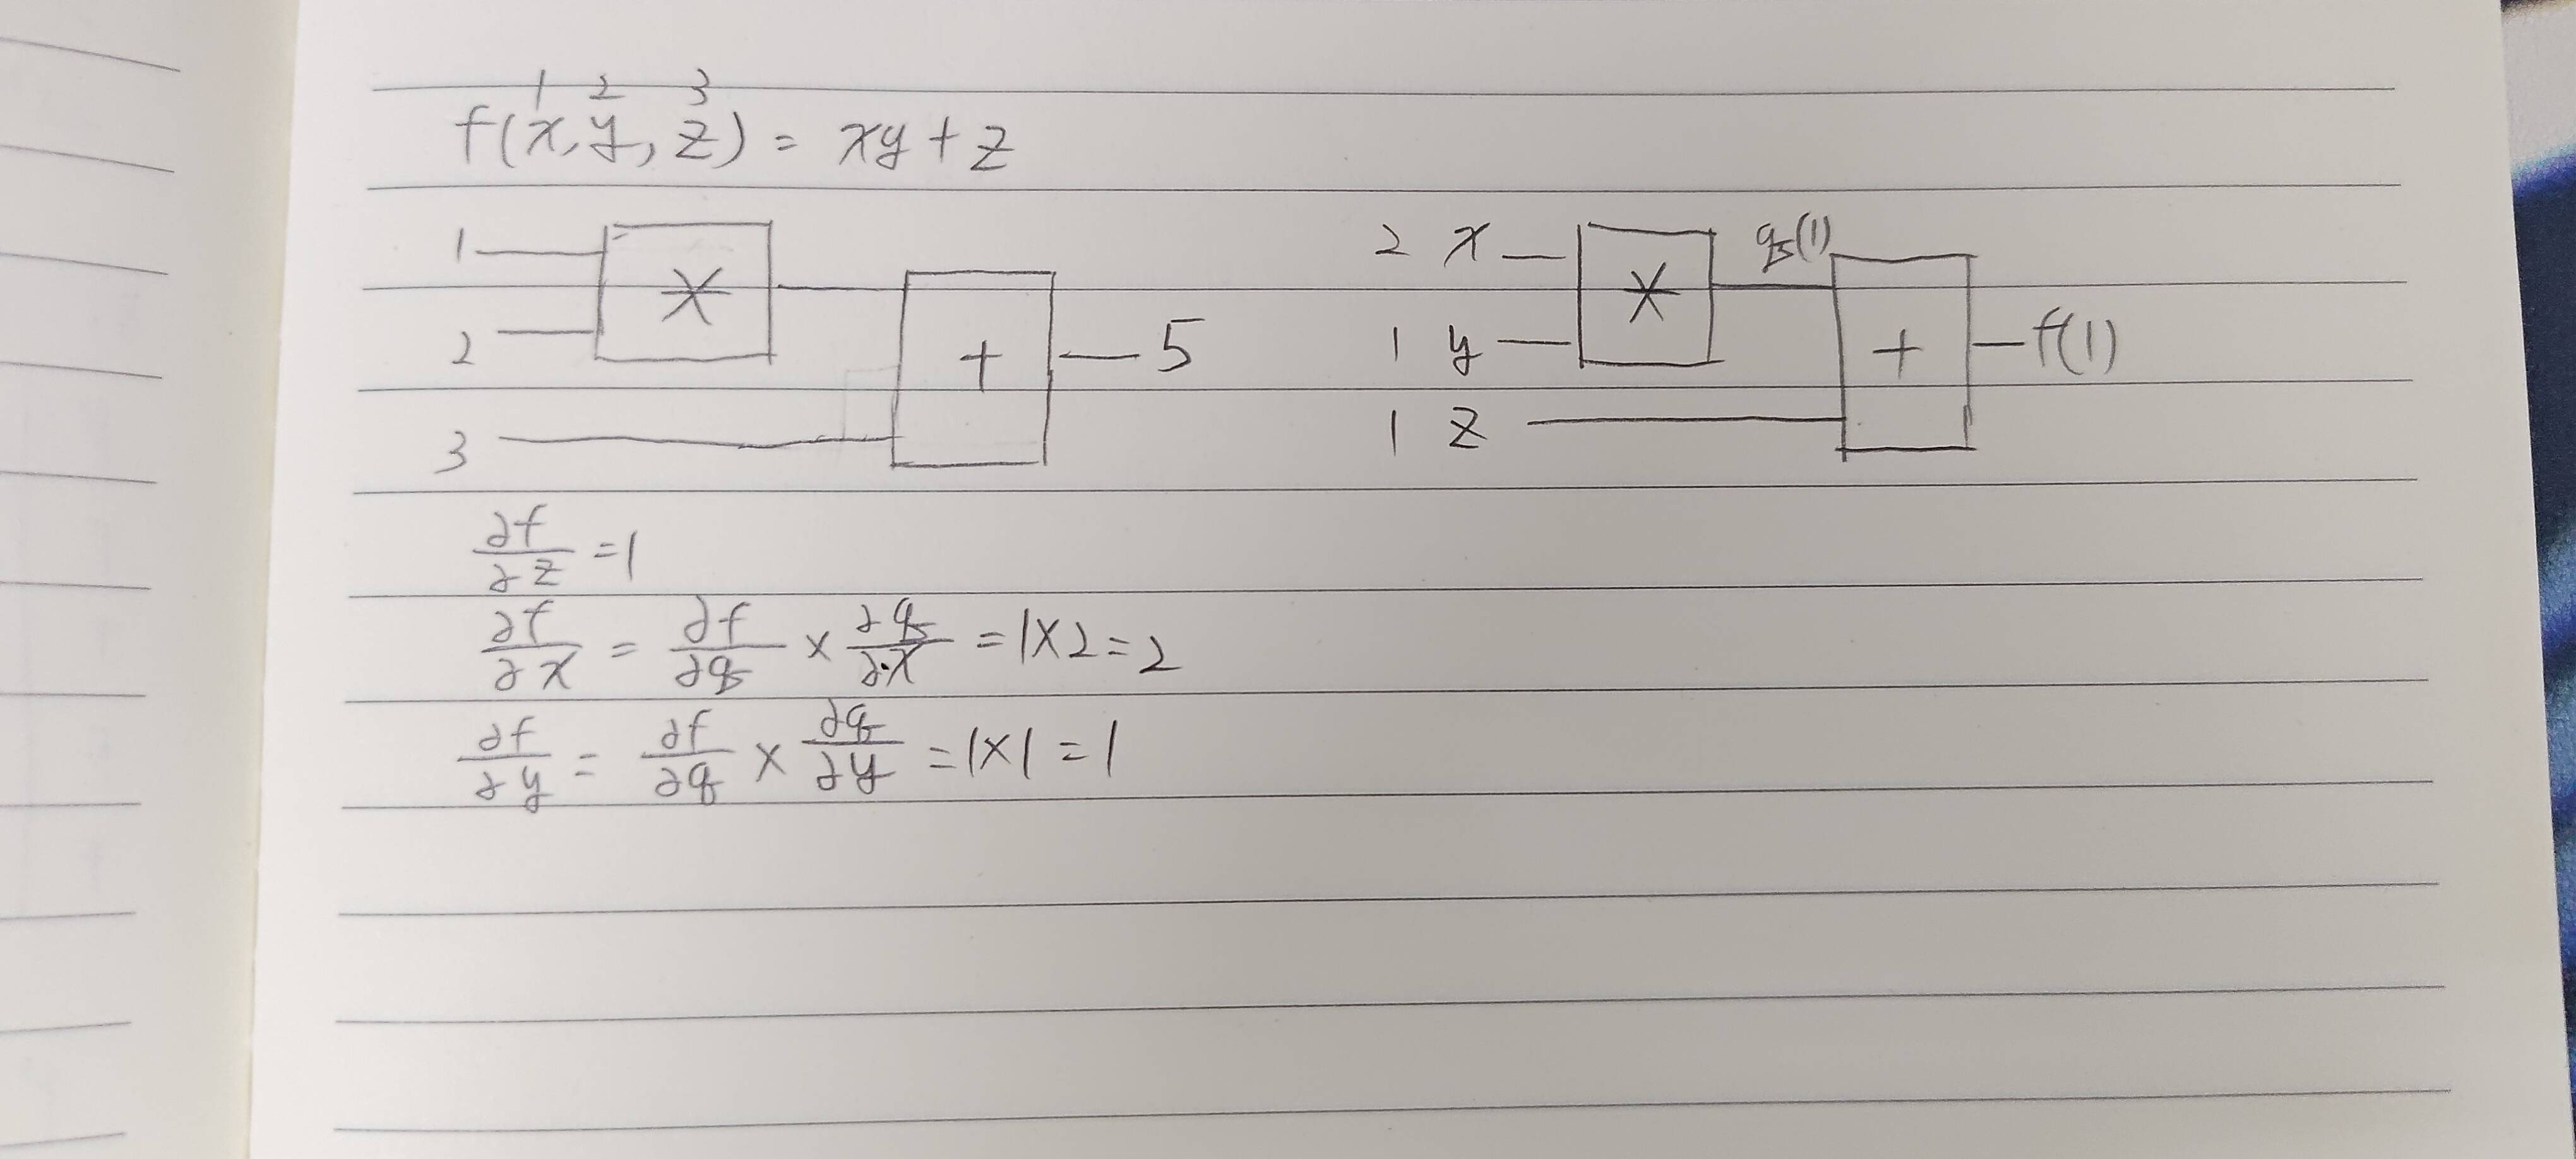 1 2 3
f(x, y, z) = xy + z
1
2
3
*
+
5
2 x
1 y
1 z
*
q(1)
+
f(1)
∂f/∂z = 1
∂f/∂x = ∂f/∂q × ∂q/∂x = 1×2 = 2
∂f/∂y = ∂f/∂q × ∂q/∂y = 1×1 = 1